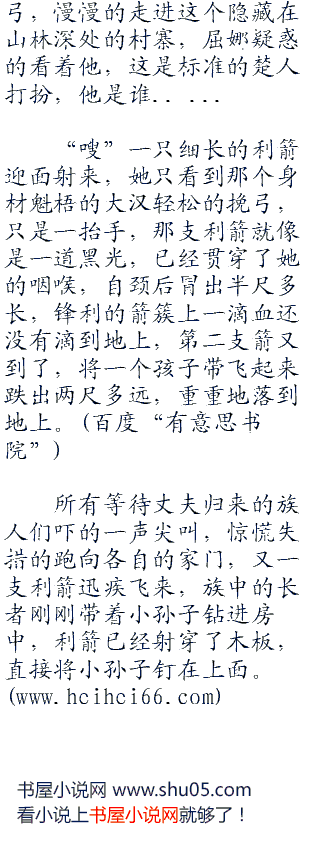 弓，慢慢的走进这个隐藏在
山林深处的村寨，屈娜疑惑
的看着他，这是标准的楚人
打扮，他是谁．．...
“嗖”一只细长的利箭
迎面射来，她只看到那个身
材魁梧的大汉轻松的挽弓，
只是一抬手，那支利箭就像
是一道黑光，已经贯穿了她
的咽喉，自颈后冒出半尺多
长，锋利的箭簇上一滴血还
没有滴到地上，第二支箭又
到了，将一个孩子带飞起来
跌出两尺多远，重重地落到
地上。(百度“有意思书
院”)
所有等待丈夫归来的族
人们吓的一声尖叫，惊慌失
措的跑向各自的家门，又一
支利箭迅疾飞来，族中的长
者刚刚带着小孙子钻进房
中，利箭已经射穿了木板，
直接将小孙子钉在上面。
(www.hcihci66.com)
书屋小说网 www.shu05.com
看小说上书屋小说网就够了！